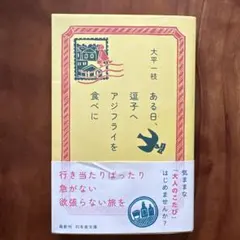 大平一枝
ある日、
逗子へ
アジフライを
食べに
気ままな
「大人のこたび」
はじめませんか?
行き当たりばったり
急がない
欲張らない旅を